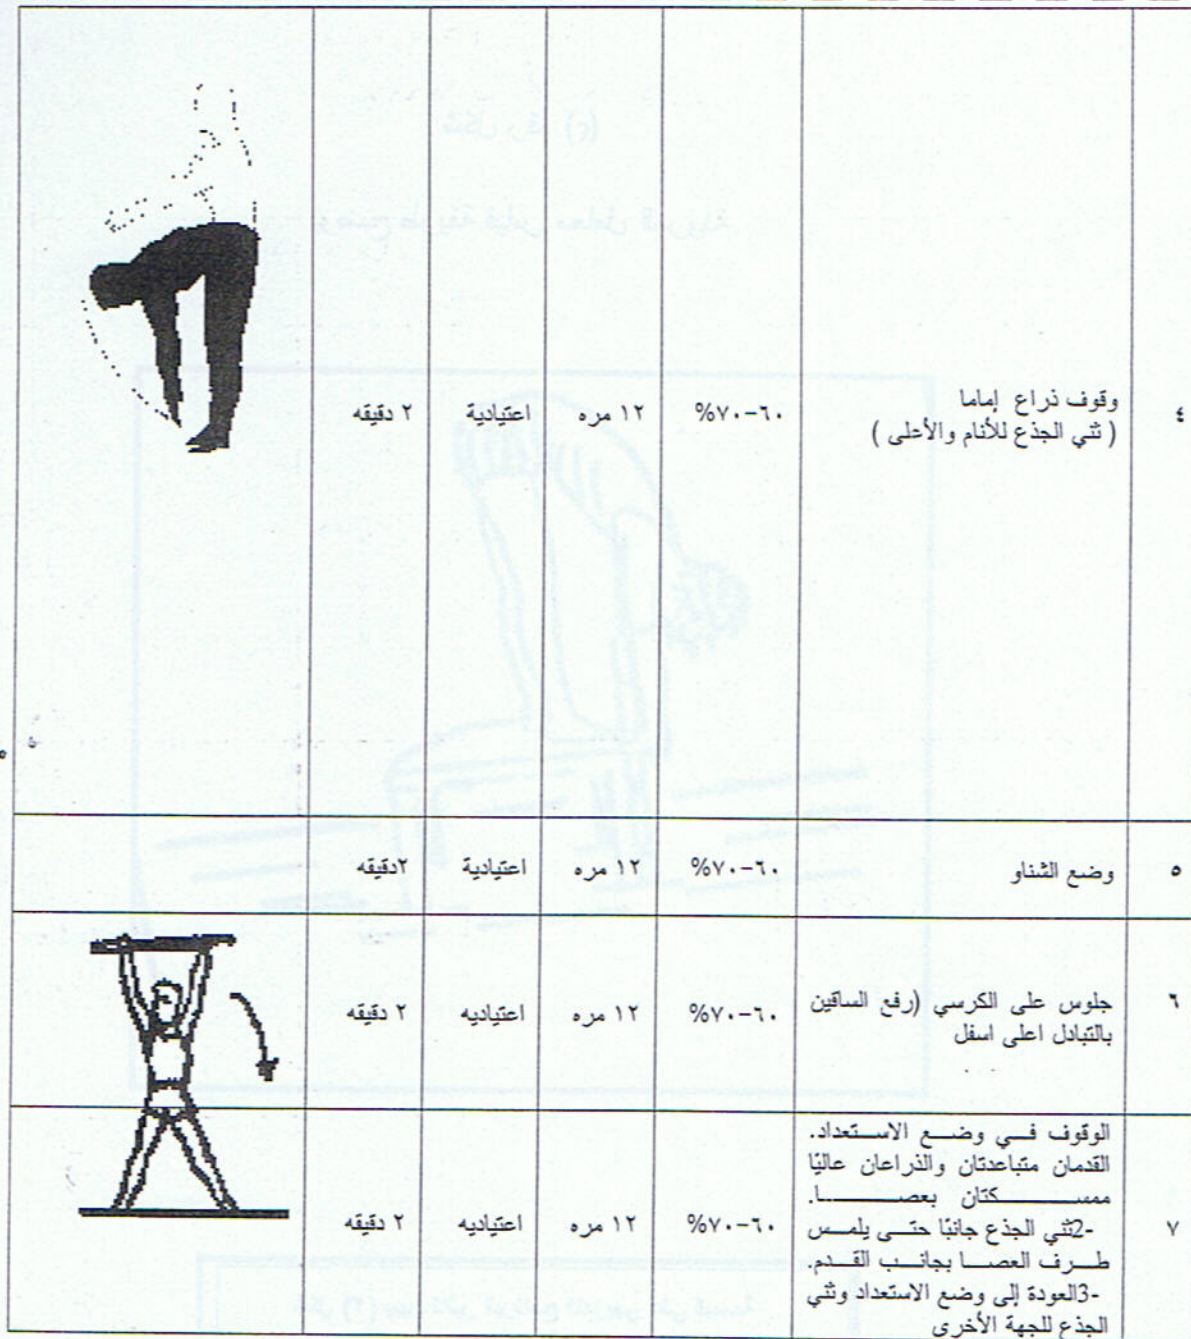 ٤
وقوف ذراع إماما
( ثني الجذع للأنام والأعلى )
٦٠-٧٠%
١٢ مره
اعتيادية
٢ دقيقه
٥
وضع الشناو
٦٠-٧٠%
١٢ مره
اعتيادية
٢دقيقه
٦
جلوس على الكرسي (رفع الساقين
بالتبادل اعلى اسفل
٦٠-٧٠%
١٢ مره
اعتياديه
٢ دقيقه
٧
الوقوف في وضع الاستعداد.
القدمان متباعدتان والذراعان عاليًا
ممسكتان بعصا.
-2ثني الجذع جانبًا حتى يلمس
طرف العصا بجانب القدم.
-3العودة إلى وضع الاستعداد وثني
الجذع للجهة الأخرى
٦٠-٧٠%
١٢ مره
اعتياديه
٢ دقيقه